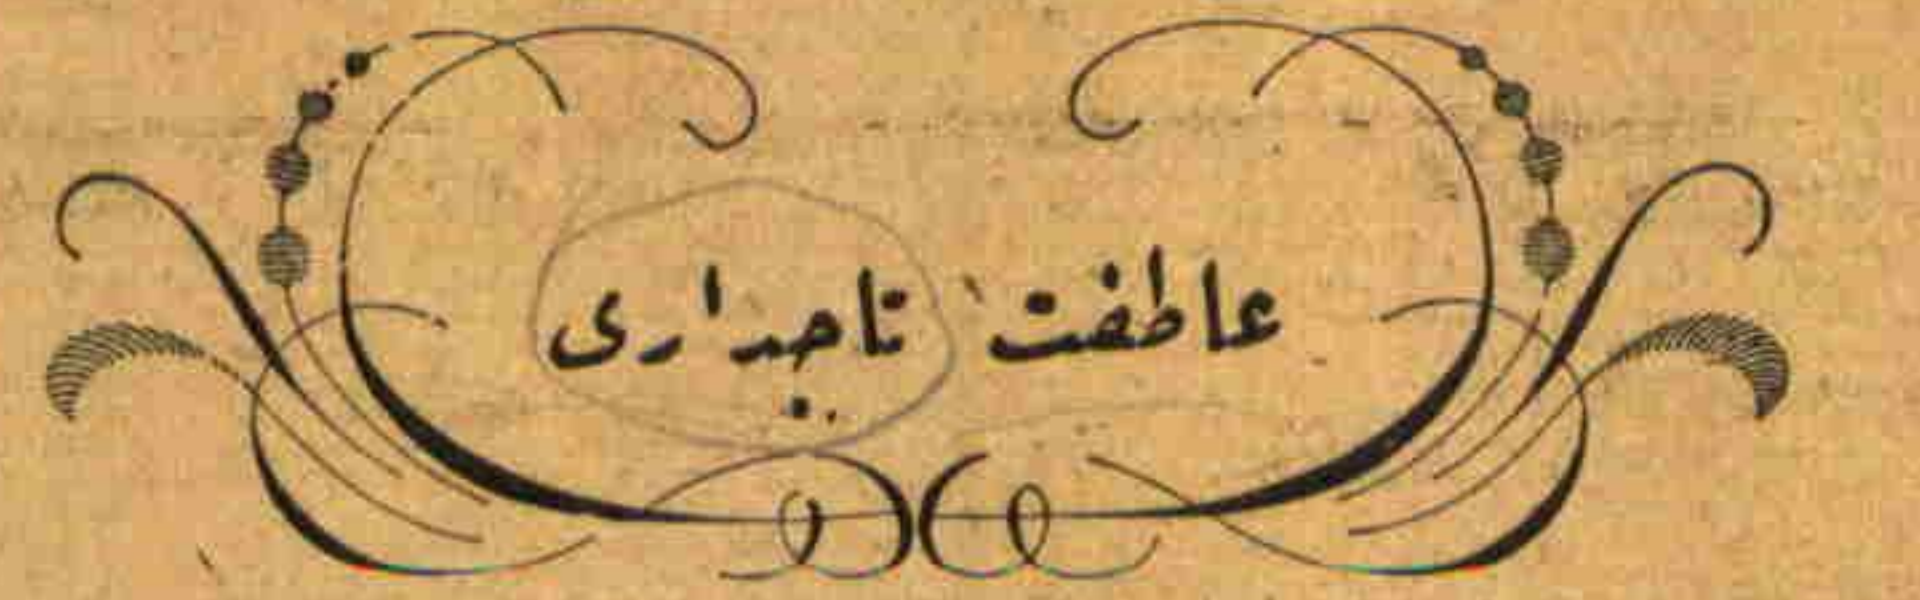 عاطفت تاجداری